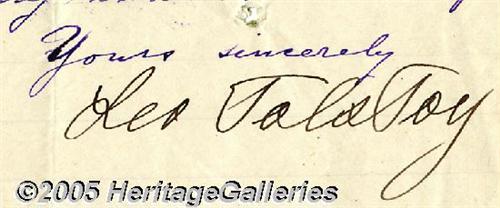 Yours sincerely
Leo Tolstoy
©2005 HeritageGalleries